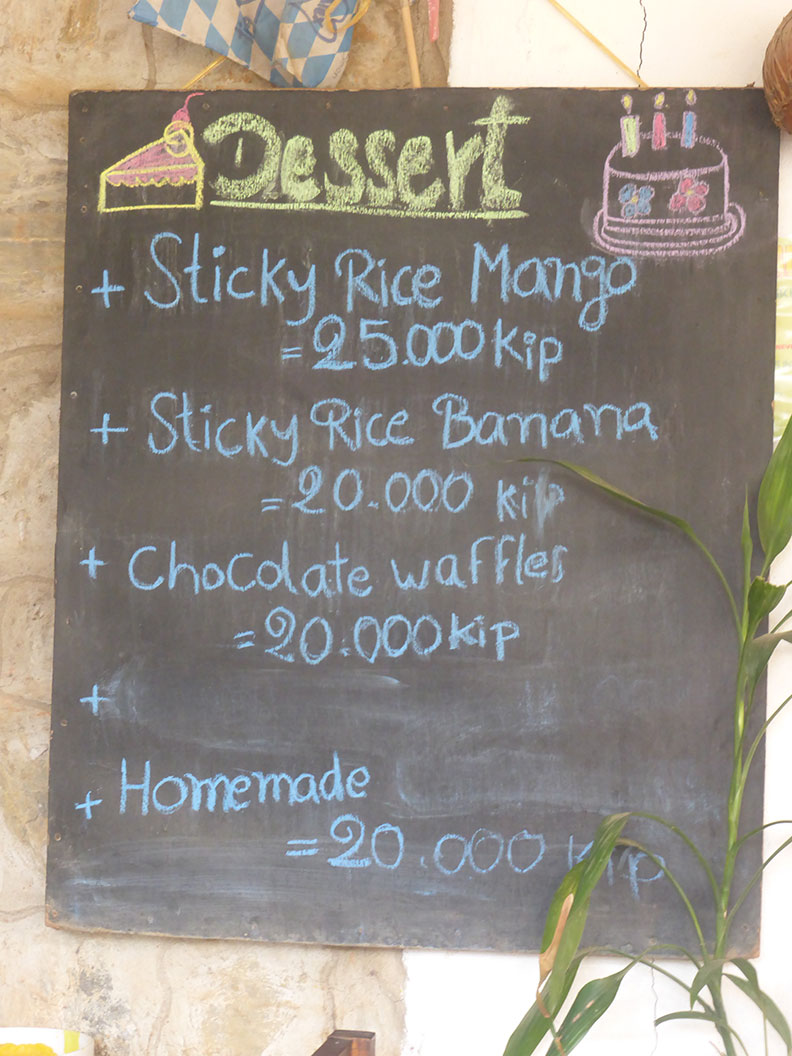 Dessert
+ Sticky Rice Mango
= 25.000 Kip
+ Sticky Rice Banana
= 20.000 Kip
+ Chocolate waffles
= 20.000 Kip
+
+ Homemade
= 20.000 Kip